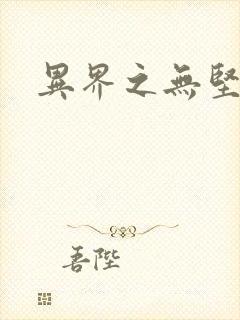 異界之無堅
吾陛